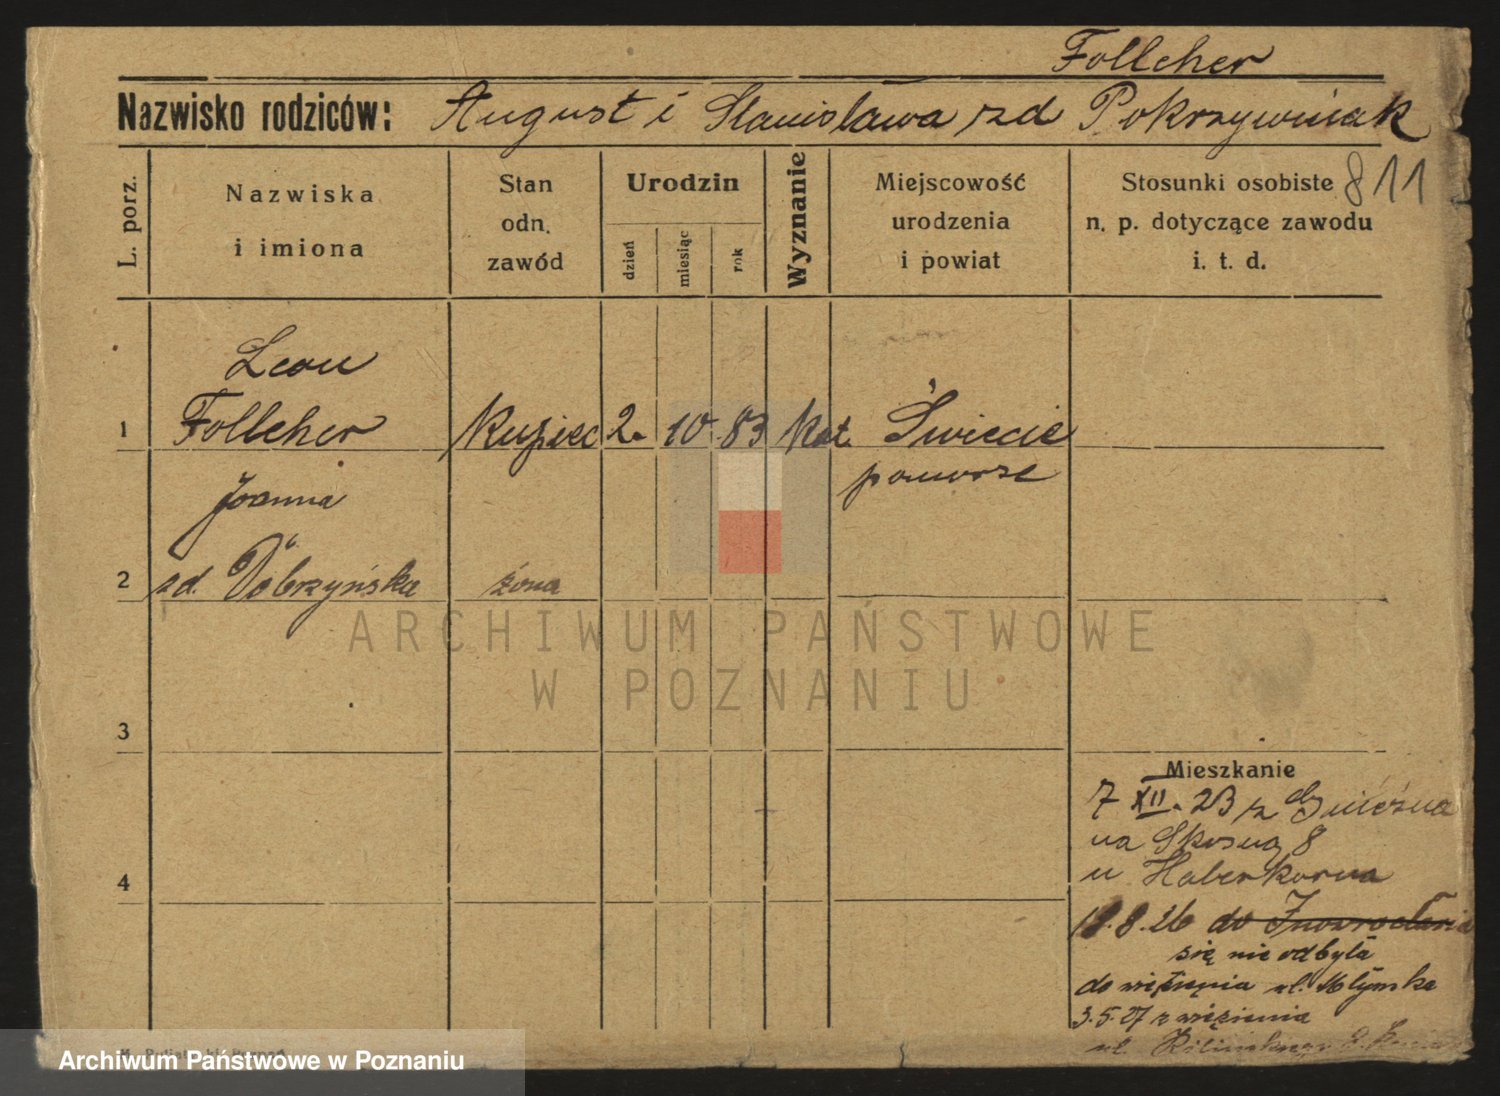 Follcher
Nazwisko rodziców: August i Stanisława zd Pokrzywniak
811
L. porz.
Nazwiska
i imiona
Stan
odn.
zawód
Urodzin
dzień
miesiąc
rok
Wyznanie
Miejscowość
urodzenia
i powiat
Stosunki osobiste
n. p. dotyczące zawodu
i. t. d.
Leon
1 Follcher Kupiec 2. 10 83 Kat. Świecie
pomorze
Joanna
2 zd. Dobrzyńska żona
3
4
Mieszkanie
7 XII. 23 z Gniezna
na Skosną 8
u Haberkorna
8.26 do Inowrocławia
się nie odbyła
do więzienia ul. Młyńska
3.5.27 z więzienia
ul.
ARCHIWUM PAŃSTWOWE
W POZNANIU
Archiwum Państwowe w Poznaniu